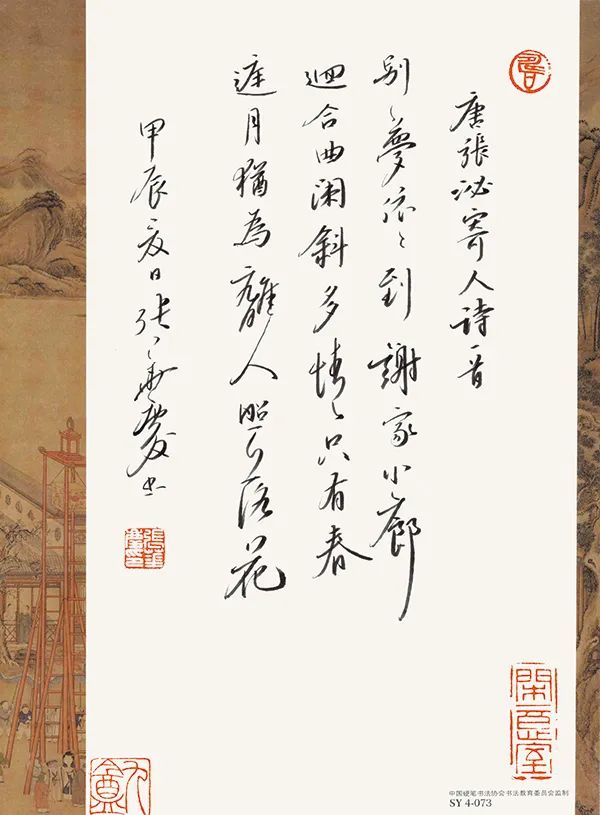 唐張泌寄人詩一首
別夢依〻到謝家小廊
迴合曲闌斜多情只有春
庭月猶為離人照落花
甲辰夏日張華慶書
中国硬笔书法协会书法教育委员会监制
SY 4-073